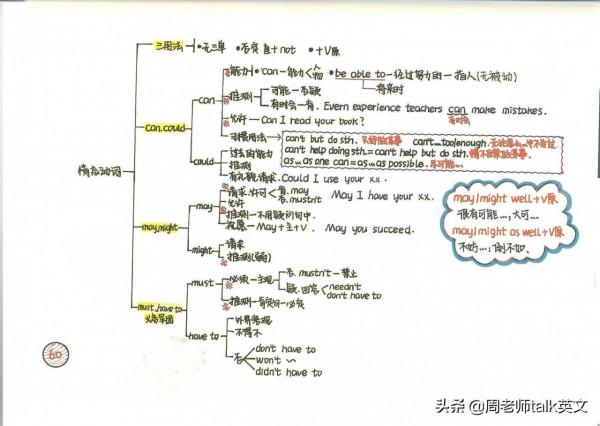 三用法 •无三单 •否定直+not •+V原
情态动词
can.could
can
能力 • can一能力 人 物 • be able to一经过努力的一指人(无被动)
将来时
推测 可能一否疑
有时会一肯. Evern experience teachers can make mistakes.
有时会
允许一 Can I read your book?
习惯用法
can't but do sth. 只好做某事 can't...too/enough. 无论怎么...也不为过
can't help doing sth.= can't help but do sth. 情不自禁做某事
as...as one can = as...as possible. 尽可能...
could
过去的能力
推测
有礼貌请求. Could I use your xx.
may.might
may
请求.许可 肯. may May I have your xx.
否. mustn't
允许
推测一不用疑问句中.
祝愿一May+主+V. May you succeed.
might
请求
推测(弱)
may/might well+V原
很有可能..., 大可...
may/might as well+V原
不妨...; 倒不如.
must.have to
义务
must
必须一主观 否. mustn't一禁止
疑.回答 needn't
don't have to
推测一肯定句一必定
have to
外界客观
不得不
否 don't have to
won't ~
didn't have to
60
头条 @周老师talk英文